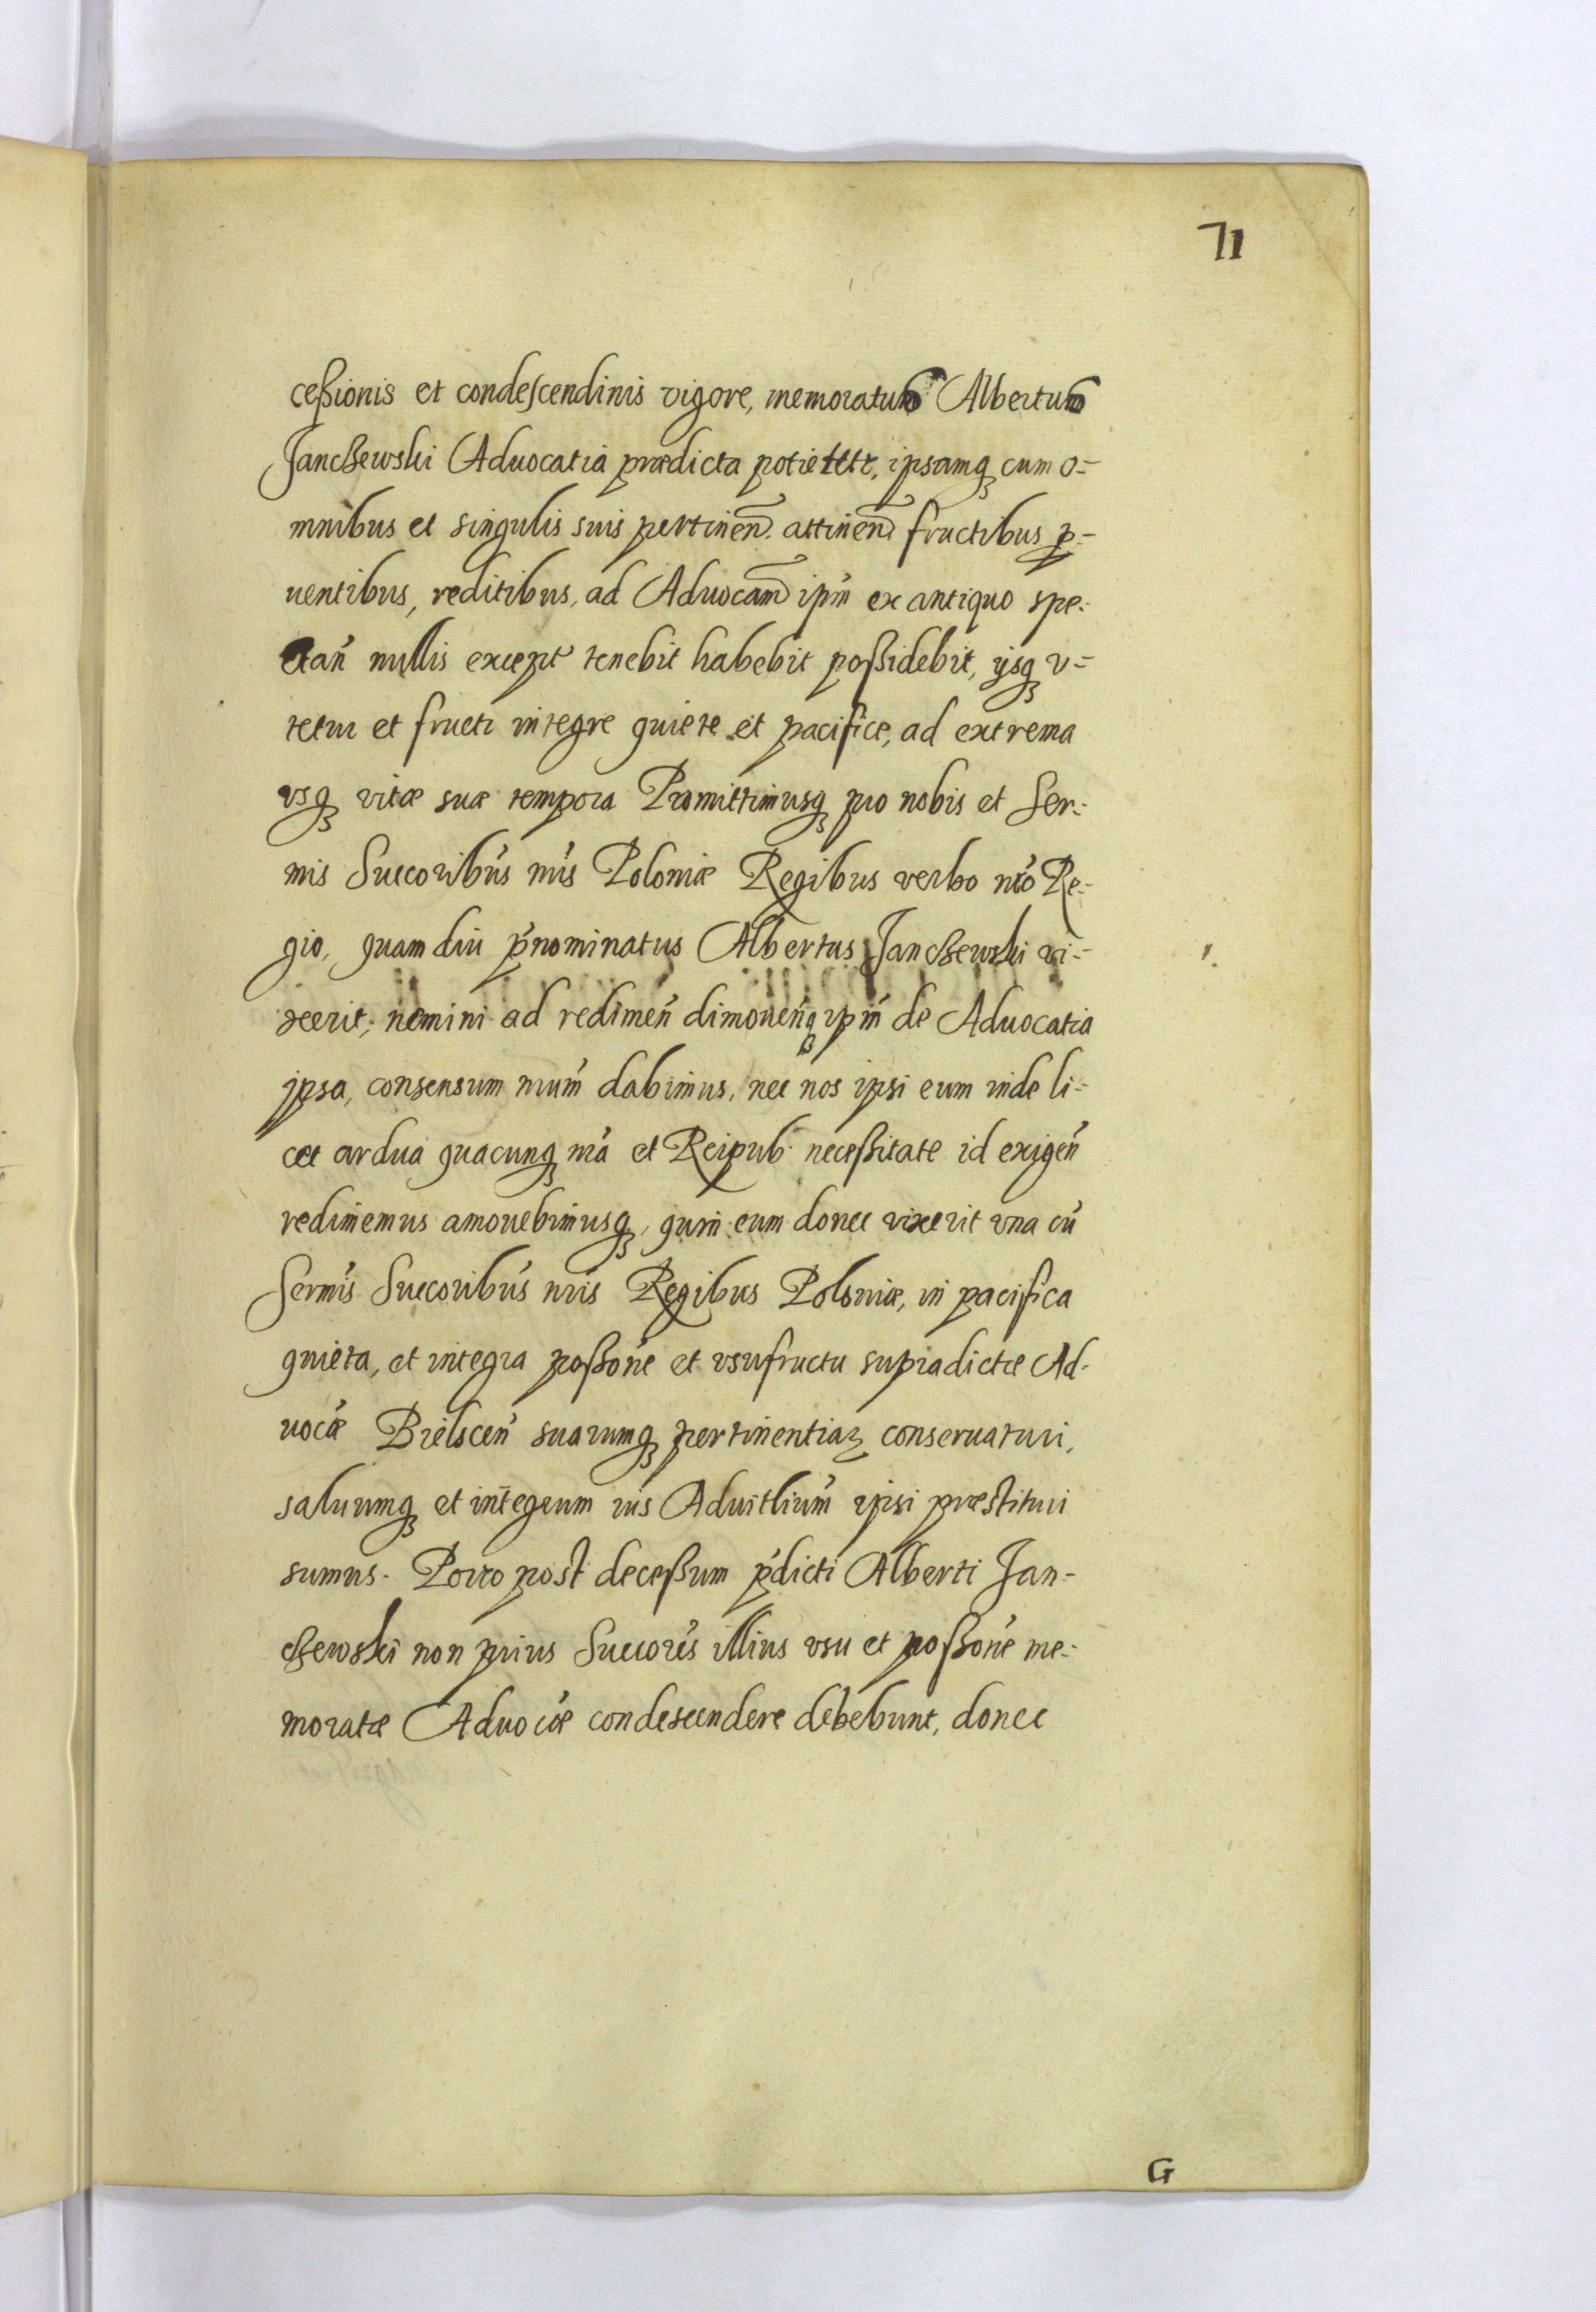 71
ceßionis et condescendinis vigore, memoratus Albertus
Janczewski Aduocatia prædicta potietur, ipsamq₃ cum o=
mnibus et singulis suis pertineñ. attineñ fructibus p=
uentibus, reditibus, ad Aduocam̃ ip̃m ex antiquo spe:
ctañ nullis except tenebit habebit poßidebit, ijsq₃ v=
tetur et fruetr integre quiete et pacifice, ad extrema
vsq₃ vitæ suæ tempora Promittimusq₃ pro nobis et Ser:
mis Succoribus nr̃is Poloniæ Regibus verbo nr̃o Re:
gio, quam diu p̃nominatus Albertus Janczewski vi=
xerit, nemini ad redimeñ dimoueñq₃ ip̃m de Aduocatia
ipsa, consensum nr̃um dabimus, nec nos ipsi eum inde li=
cet ardua quacunq₃ nr̃a et Reipub. neceßitate id exigeñ
redimemus amouebimusq₃, quin eum donec vixerit vna cũ
Sermis Succoribus nr̃is Regibus Poloniæ, in pacifica
quieta, et integra poßone et vsufructu supradictæ Ad-
uocæ Bielsceñ suarumq₃ pertinentiaꝝ conseruaturi,
saluumq₃ et integrum ius Aduitlium ipsi præstituri
sumus. Porro post deceßum p̃dicti Alberti Jan=
czewski non prius Succores illius vsu et poßone me:
moratæ Aduocæ condescendere debebunt, donec
G